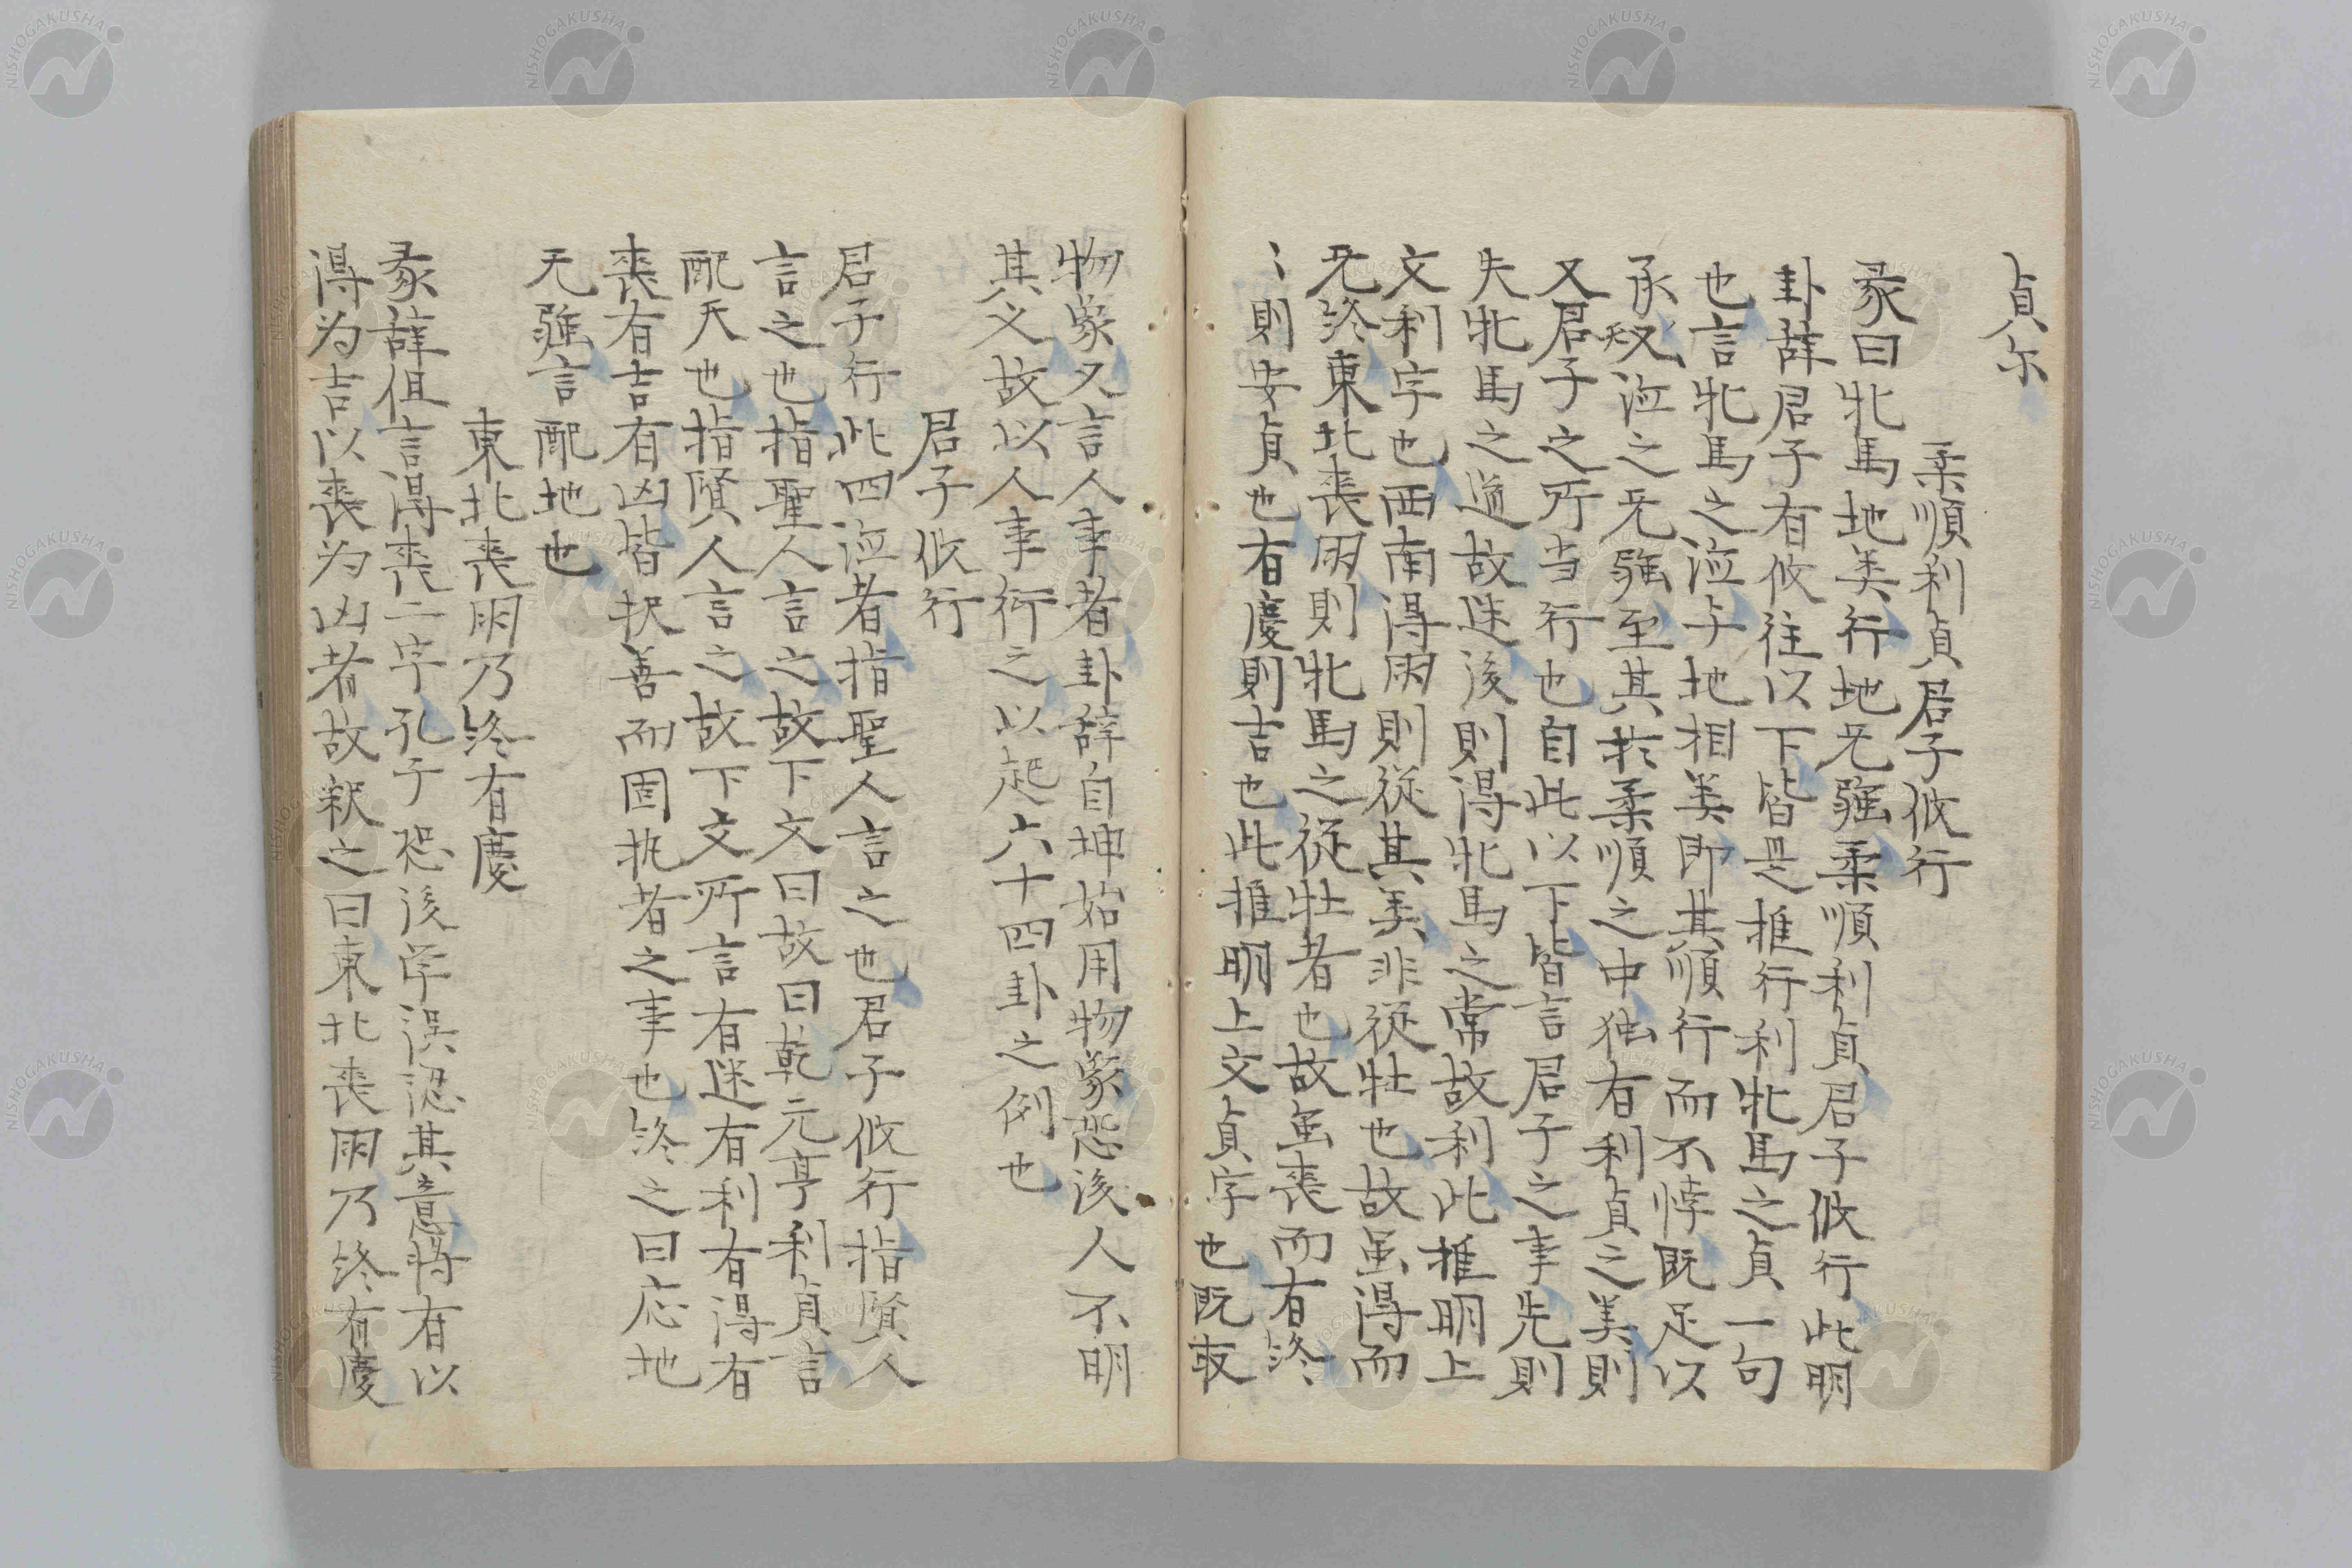 貞尔
柔順利貞君子攸行
彖曰牝馬地类行地无疆柔順利貞君子攸行此明
卦辞君子有攸往以下皆是推行利牝馬之貞一句
也言牝馬之泣与地相类即其順行而不悖既足以
承釼泣之无疆至其於柔順之中独有利貞之美則
又君子之所当行也自此以下皆言君子之事先則
失牝馬之道故迷後則得牝馬之常故利此推明上
文利字也西南得朋則從其类非從牡也故虽得而
无終東北喪朋則牝馬之從牡者也故虽喪而有終
〻則安貞也有慶則吉也此推明上文貞字也既取
物象又言人事者卦辞自坤始用物象恐後人不明
其义故以人事衍之以起六十四卦之例也
君子攸行
君子行此四泣者指聖人言之也君子攸行指賢人
言之也指聖人言之故下文曰故曰乾元亨利貞言
配天也指賢人言之故下文所言有迷有利有得有
喪有吉有凶皆択善而固执者之事也終之曰応地
无疆言配地也
東北喪朋乃終有慶
彖辞但言得喪二字孔子恐後学误認其意将有以
得为吉以喪为凶者故釈之曰東北喪朋乃終有慶
NISHOGAKUSHA